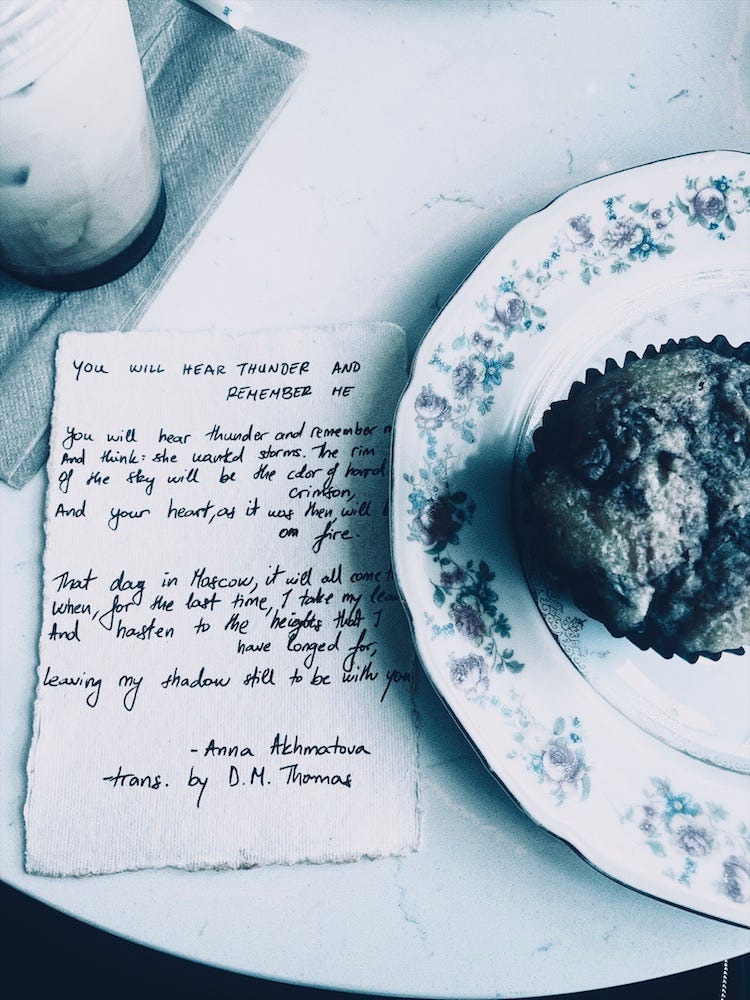 YOU WILL HEAR THUNDER AND
REMEMBER ME
You will hear thunder and remember
And think: she wanted storms. The rim
of the sky will be the color of hard
crimson,
And your heart, as it was then will
on fire.
That day in Moscow, it will all come
when, for the last time, I take my
And hasten to the heights that I
have longed for,
Leaving my shadow still to be with you
- Anna Akhmatova
trans. by D.M. Thomas